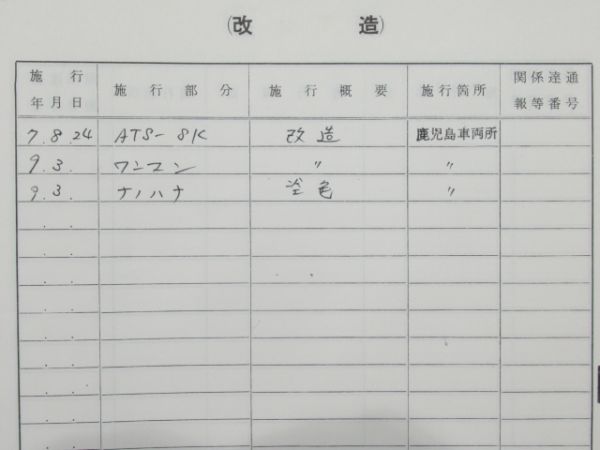 (改造)
施行年月日 施行部分 施行概要 施行箇所 関係達通報等番号
7.8.24 ATS-SK 改造 鹿児島車両所
9.3. ワンマン 〃 〃
9.3. ナノハナ 塗色 〃